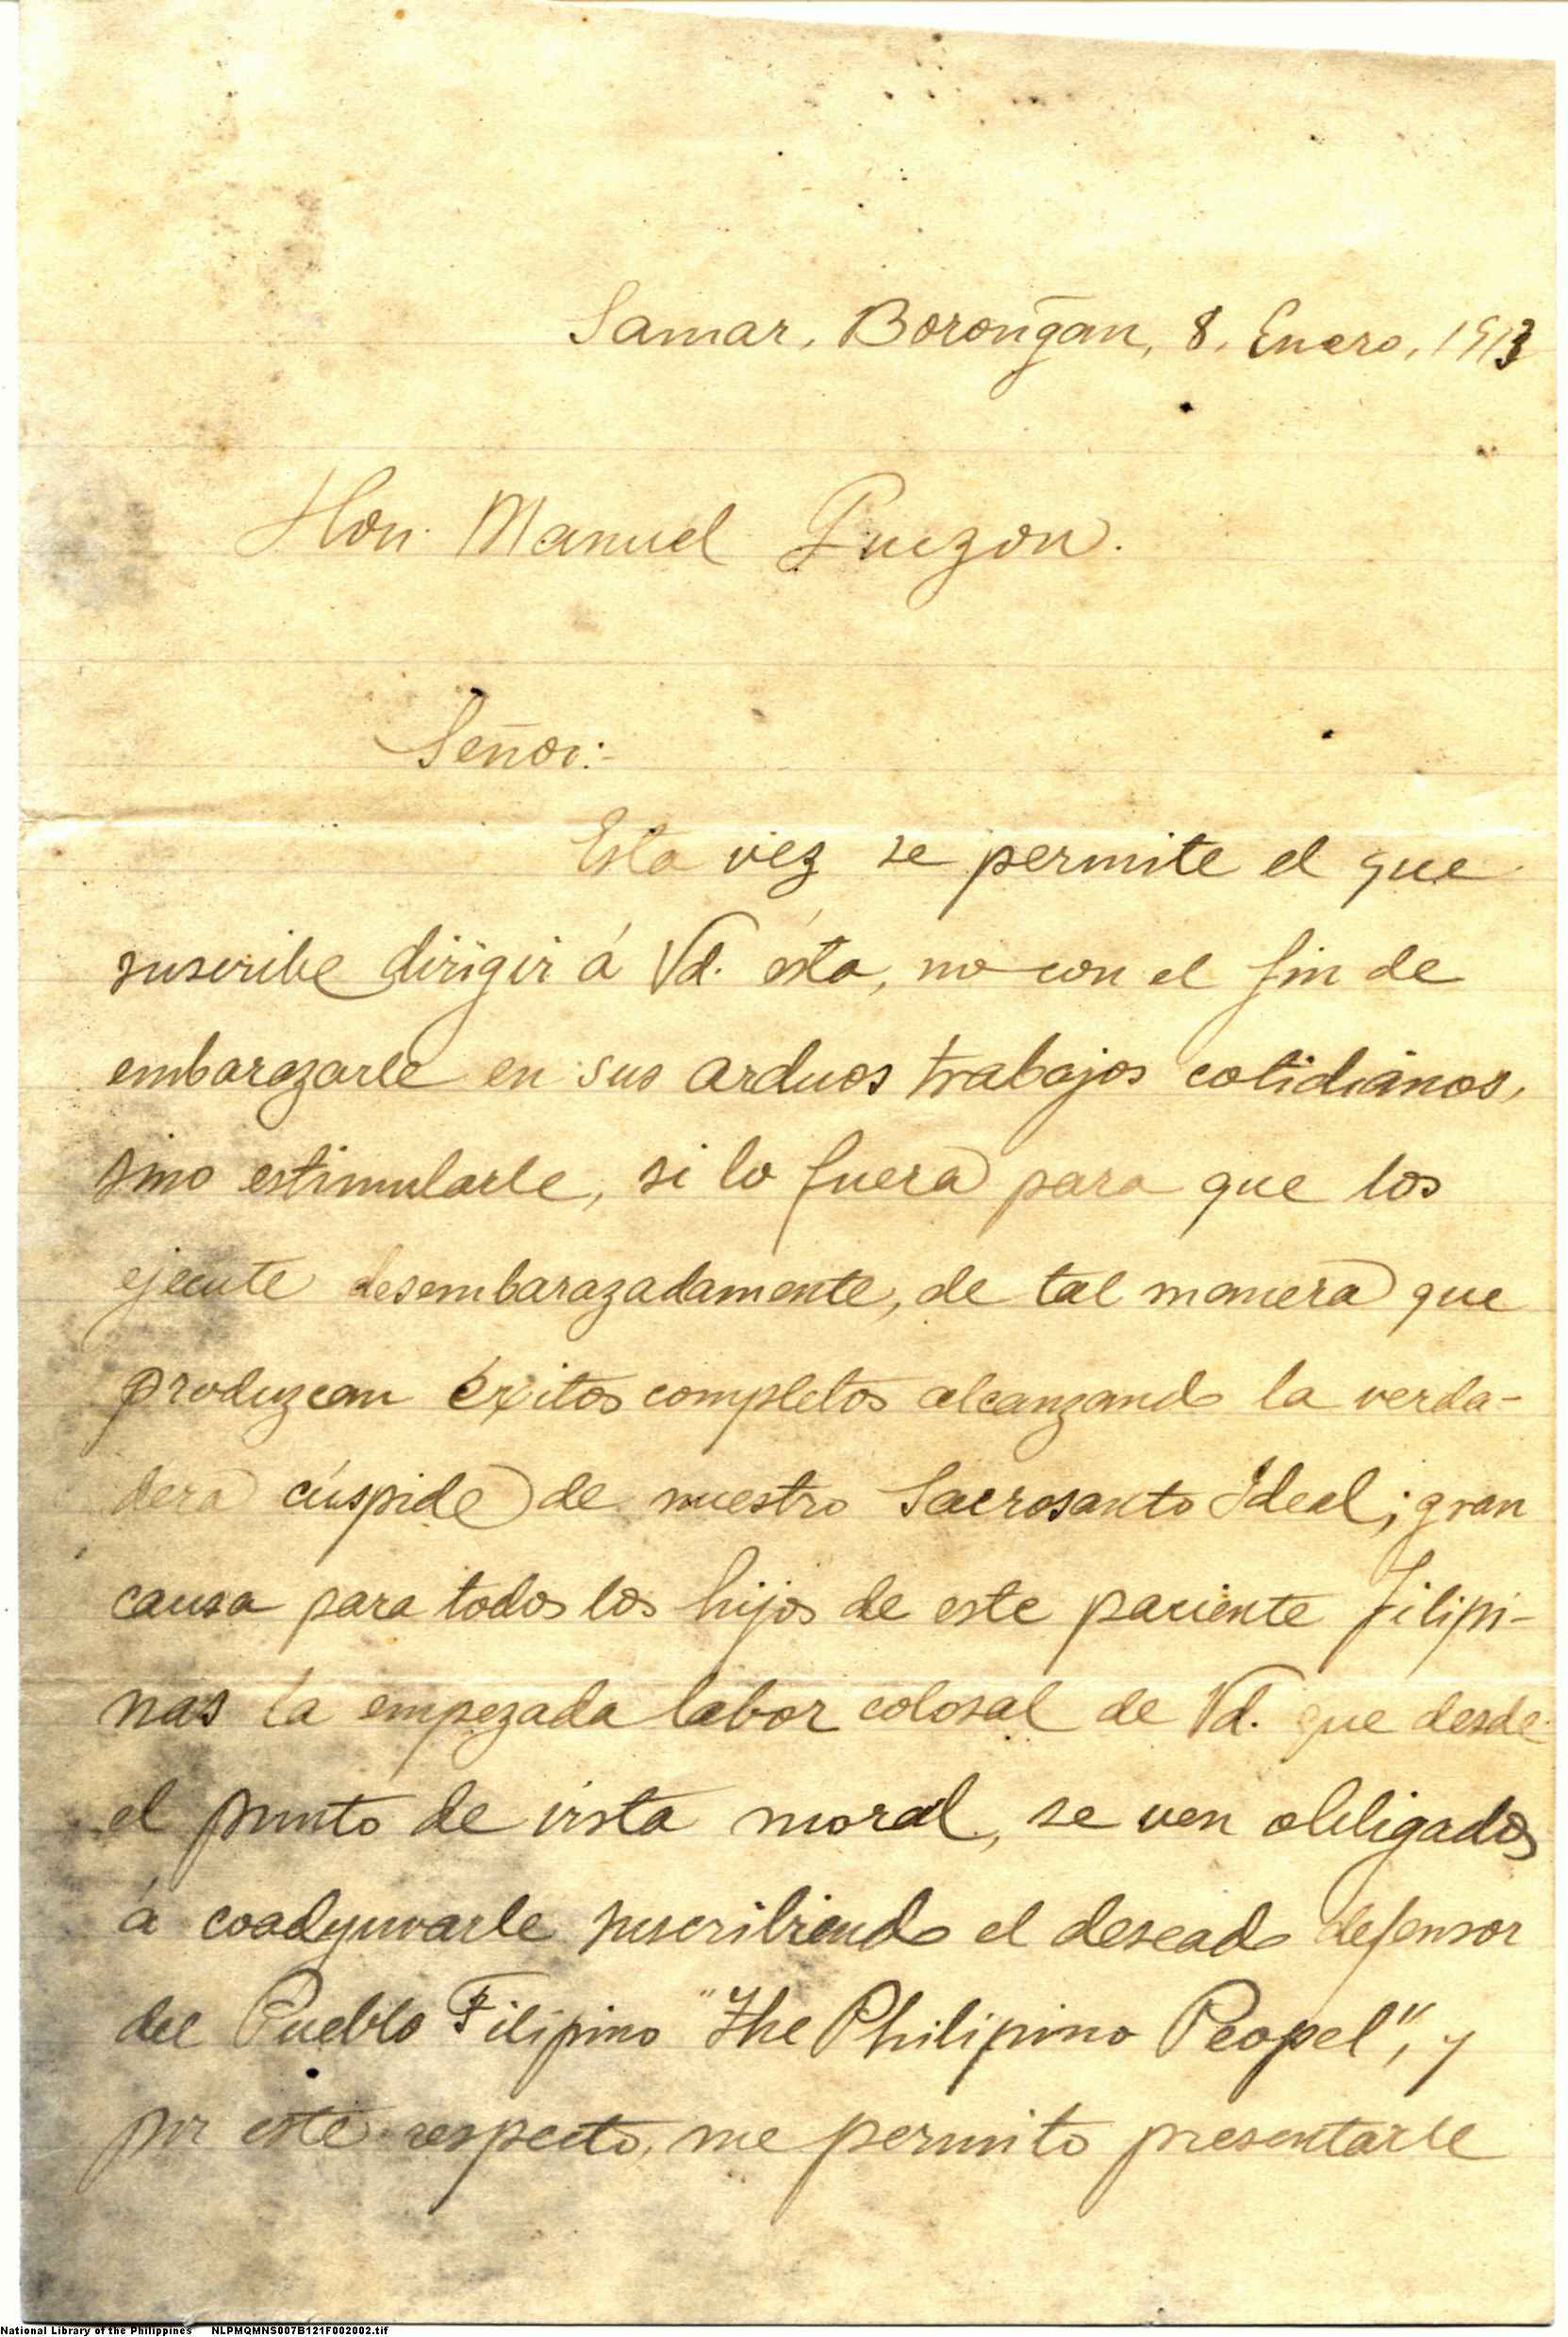 Samar, Boroñgan, 8, Enero, 1913
Hon. Manuel Quezon.
Señor:-
Esta vez se permite el que
suscribe dirigir á Vd. ésta, no con el fin de
embarazarle en sus arduos trabajos cotidianos,
sino estimularle, si lo fuera para que los
ejecute desembarazadamente, de tal manera que
produzcan éxitos completos alcanzando la verda-
dera cúspide de nuestro Sacrosanto Ideal; gran
causa para todos los hijos de este paciente Filipi-
nas la empezada labor colosal de Vd. que desde
el punto de vista moral, se ven obligados
á coadyuvarle suscribiendo el deseado defensor
del Pueblo Filipino "The Philipino Peopel", y
por este respecto, me permito presentarle
National Library of the Philippines NLPMQMNS007B121F002002.tif